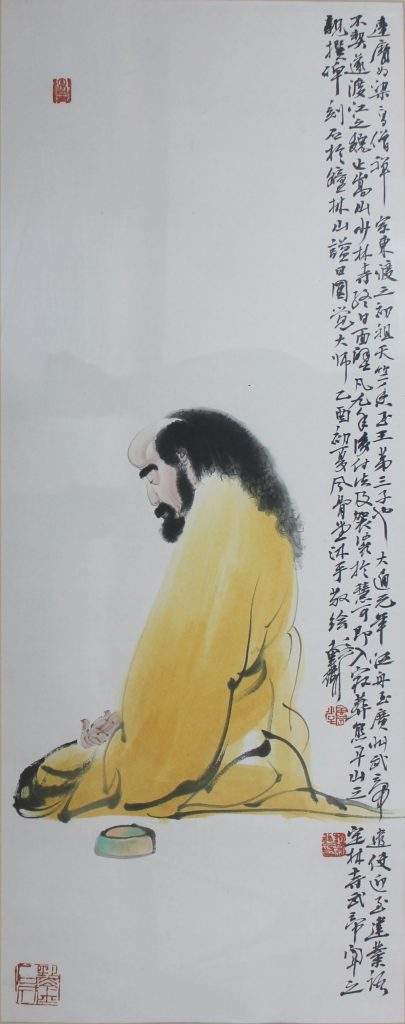 達磨为梁高僧禅宗東渡之初祖天竺香至王第三子也大通元年泛舟至廣州武帝遣使迎至建業語
不契遂渡江之魏止嵩山少林寺終日面壁凡九年後付法及袈裟於慧可即入寂葬熊耳山之定林寺武帝聞之
親撰碑刻石於鐘林山諡曰圓覺大师乙酉初夏風骨堂沐手敬绘